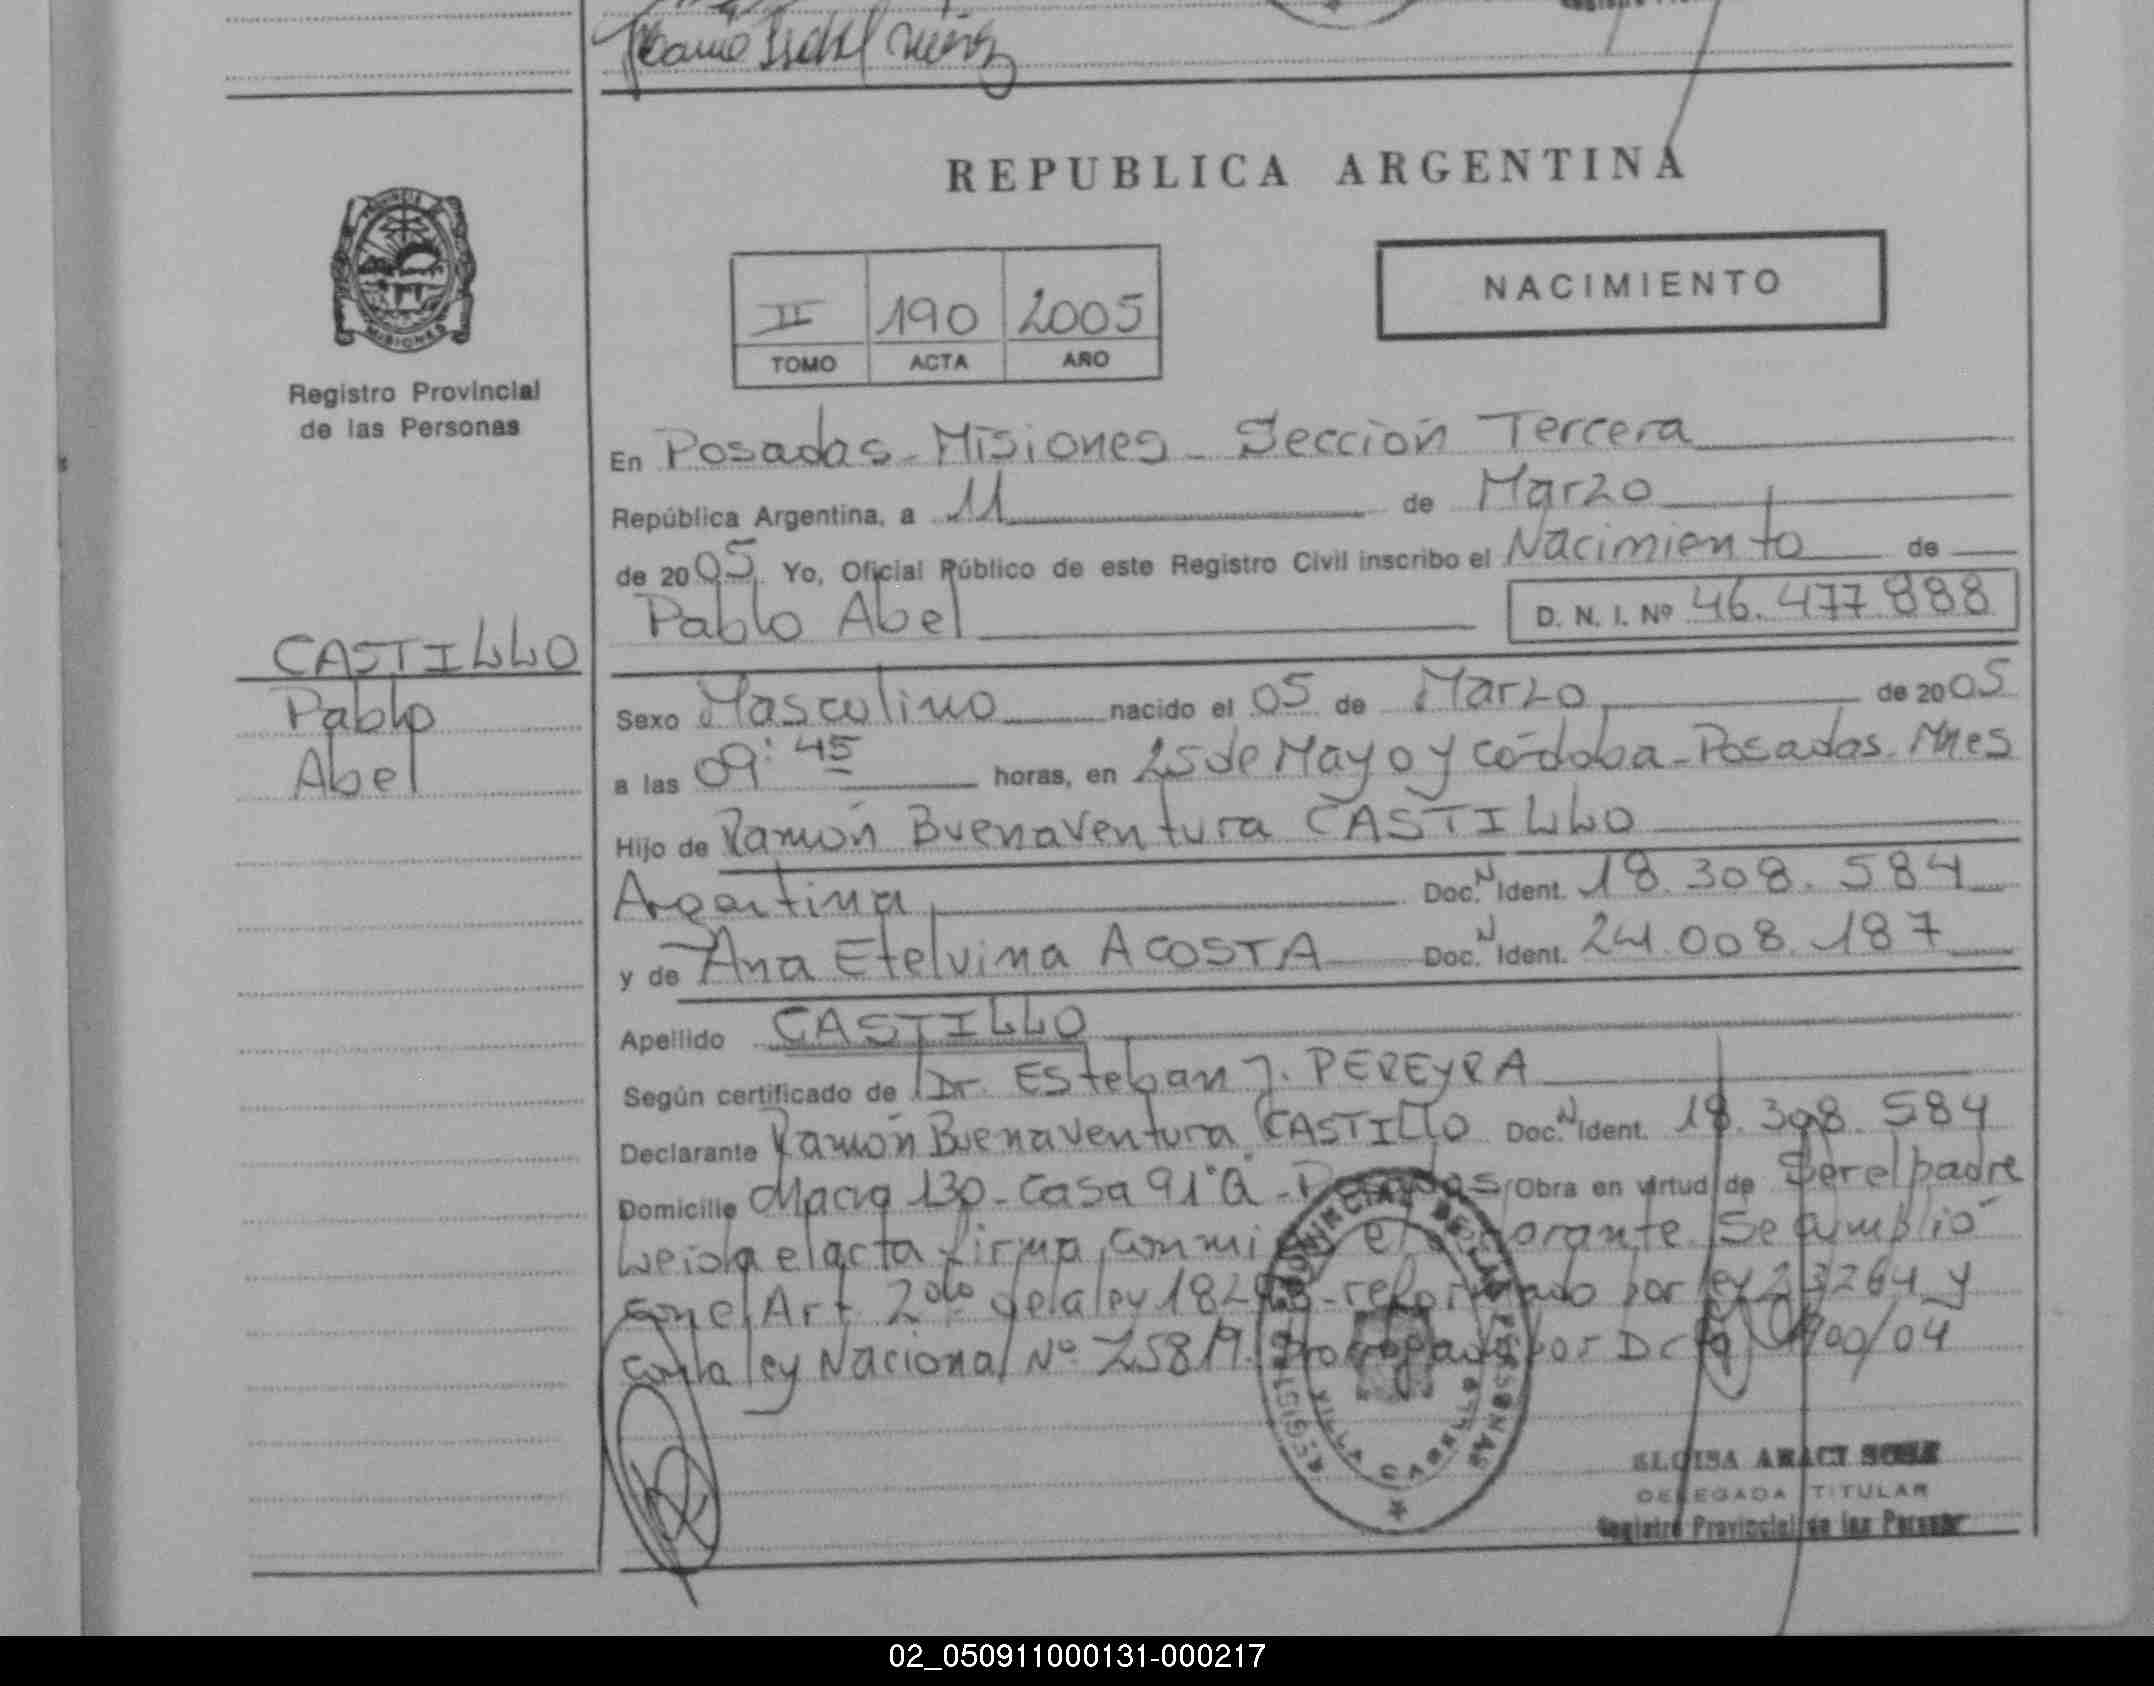 REPUBLICA ARGENTINA
PROVINCIA
MISIONES
NACIMIENTO
II 190 2005
TOMO ACTA AÑO
Registro Provincial
de las Personas
En Posadas - Misiones - Sección Tercera
República Argentina, a 11 de Marzo
de 2005 Yo, Oficial Público de este Registro Civil inscribo el Nacimiento de
Pablo Abel
D. N. I. Nº 46.477.888
CASTILLO
Pablo
Abel
Sexo Masculino nacido el 05 de Marzo de 2005
a las 09:45 horas, en 25 de Mayo y Córdoba - Posadas - Mnes
Hijo de Ramón Buenaventura CASTILLO
Argentina Doc. N Ident. 18.308.584
y de Ana Etelvina ACOSTA Doc. N Ident. 24.008.187
Apellido CASTILLO
Según certificado de Dr. Esteban J. PEREYRA
Declarante Ramón Buenaventura CASTILLO Doc. N Ident. 18.308.584
Domicilio 130 - Casa 91 - Posadas Obra en virtud de Ser el padre
Leida el acta firma conmigo el declarante Se cumplió
con el Art. 2do de la ley reformado por ley 23264 y
con la ley Nacional Nº 25819. Prorrogada por
REGISTRO PROVINCIAL DE LAS PERSONAS
VILLA CABELLO
DELEGADA TITULAR
Registro Provincial de las Personas
02_050911000131-000217